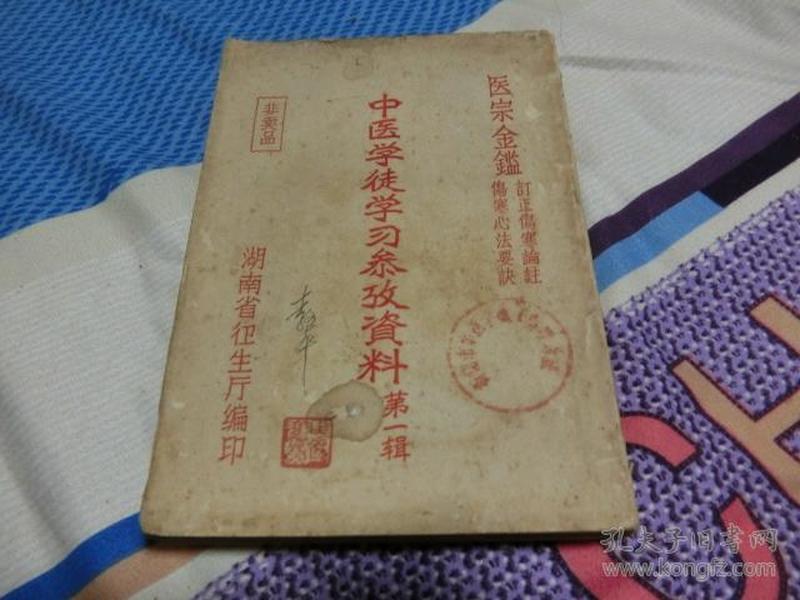 医宗金鑑
訂正傷寒論註
傷寒心法要訣
中医学徒学习叅攷資料
第一辑
非卖品
湖南省衍生厅编印
孔夫子旧书网
www.kongfz.com